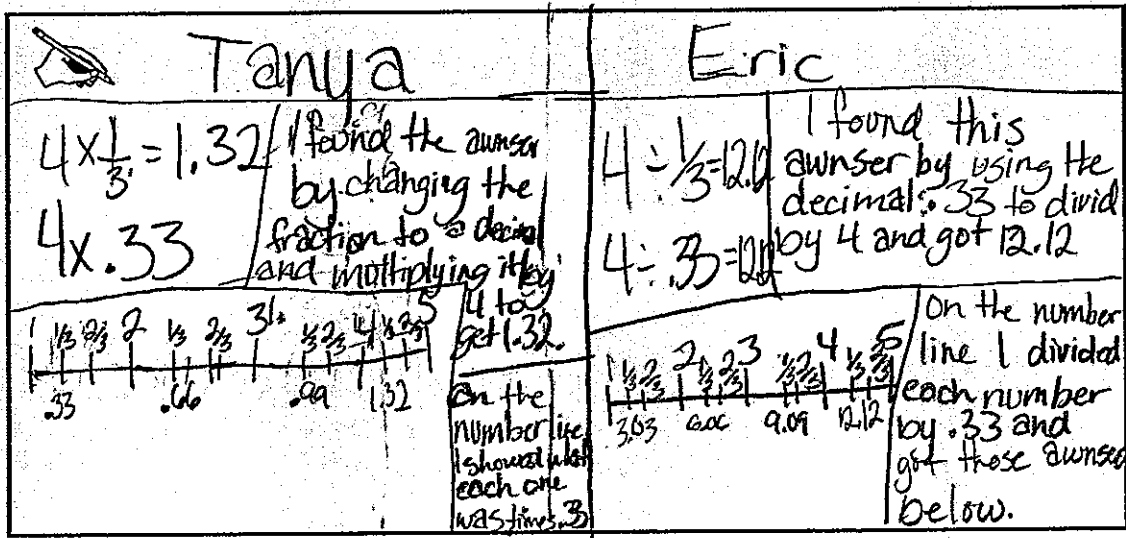 Tanya
4 x 1/3 = 1.32
4 x .33
I found the awnser
by changing the
fraction to a decimal
and moltiplying it by
4 to
get 1.32.
1 1/3 2/3 2 1/3 2/3 3 1/3 2/3 4 1/3 2/3 5
.33 .66 .99 1.32
On the
number line
I showed what
each one
was times .33
Eric
4 ÷ 1/3 = 12.12
4 ÷ .33 = 12.12
I found this
awnser by using the
decimal .33 to divid
by 4 and got 12.12
1 1/3 2/3 2 1/3 2/3 3 1/3 2/3 4 1/3 2/3 5
3.03 6.06 9.09 12.12
On the number
line I divided
each number
by .33 and
got those awnsers
below.